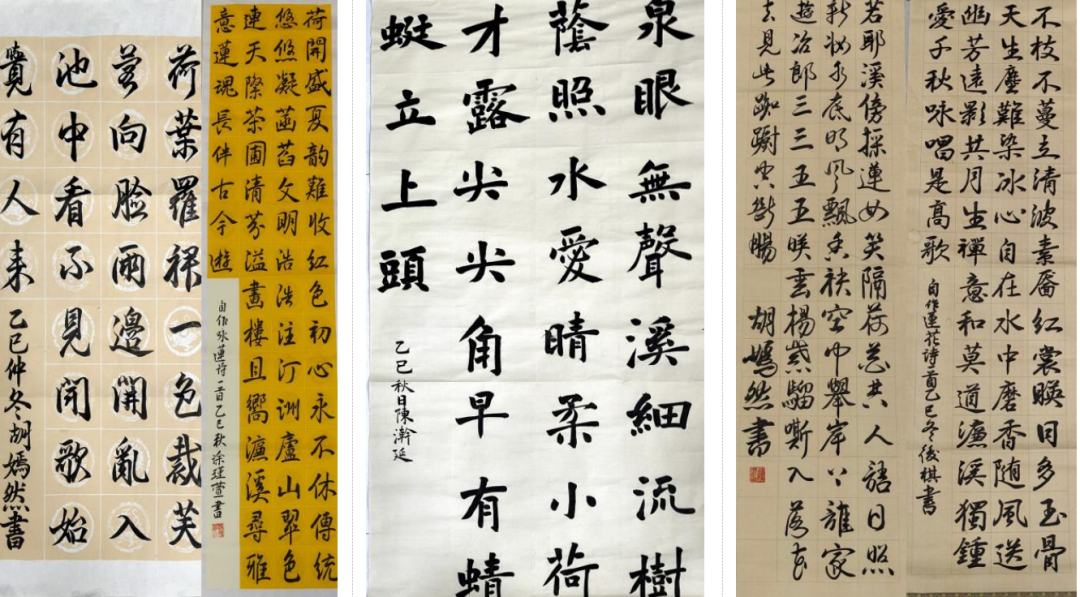 荷葉羅裙一色裁芙
蓉向臉兩邊開亂入
池中看不見聞歌始
覺有人来
乙巳仲冬胡嫣然書
荷開盛夏韻難收紅色初心永不休傳統
悠悠凝菡萏文明浩浩注汀洲廬山翠色
連天際茶圃清芬溢畫樓且嚮濂溪尋雅
意蓮魂長伴古今遊
自作咏蓮詩一首乙巳秋瑾萱書
泉眼無聲溪細流樹
蔭照水愛晴柔小荷
才露尖尖角早有蜻
蜓立上頭
乙巳秋日陳瀚延
若耶溪傍採蓮女笑隔荷花共人語日照
新妝水底明風飄香袂空中舉岸上誰家
遊冶郎三三五五暎垂楊紫騮嘶入落花
去見此踟躕空斷腸
胡嫣然書
不枝不蔓立清波素靨紅裳暎日多玉骨
天生塵難染冰心自在水中磨香随風送
幽芳遠影共月生禪意和莫道濂溪獨鍾
愛千秋咏唱是高歌
自作蓮花詩一首乙巳冬俊棋書